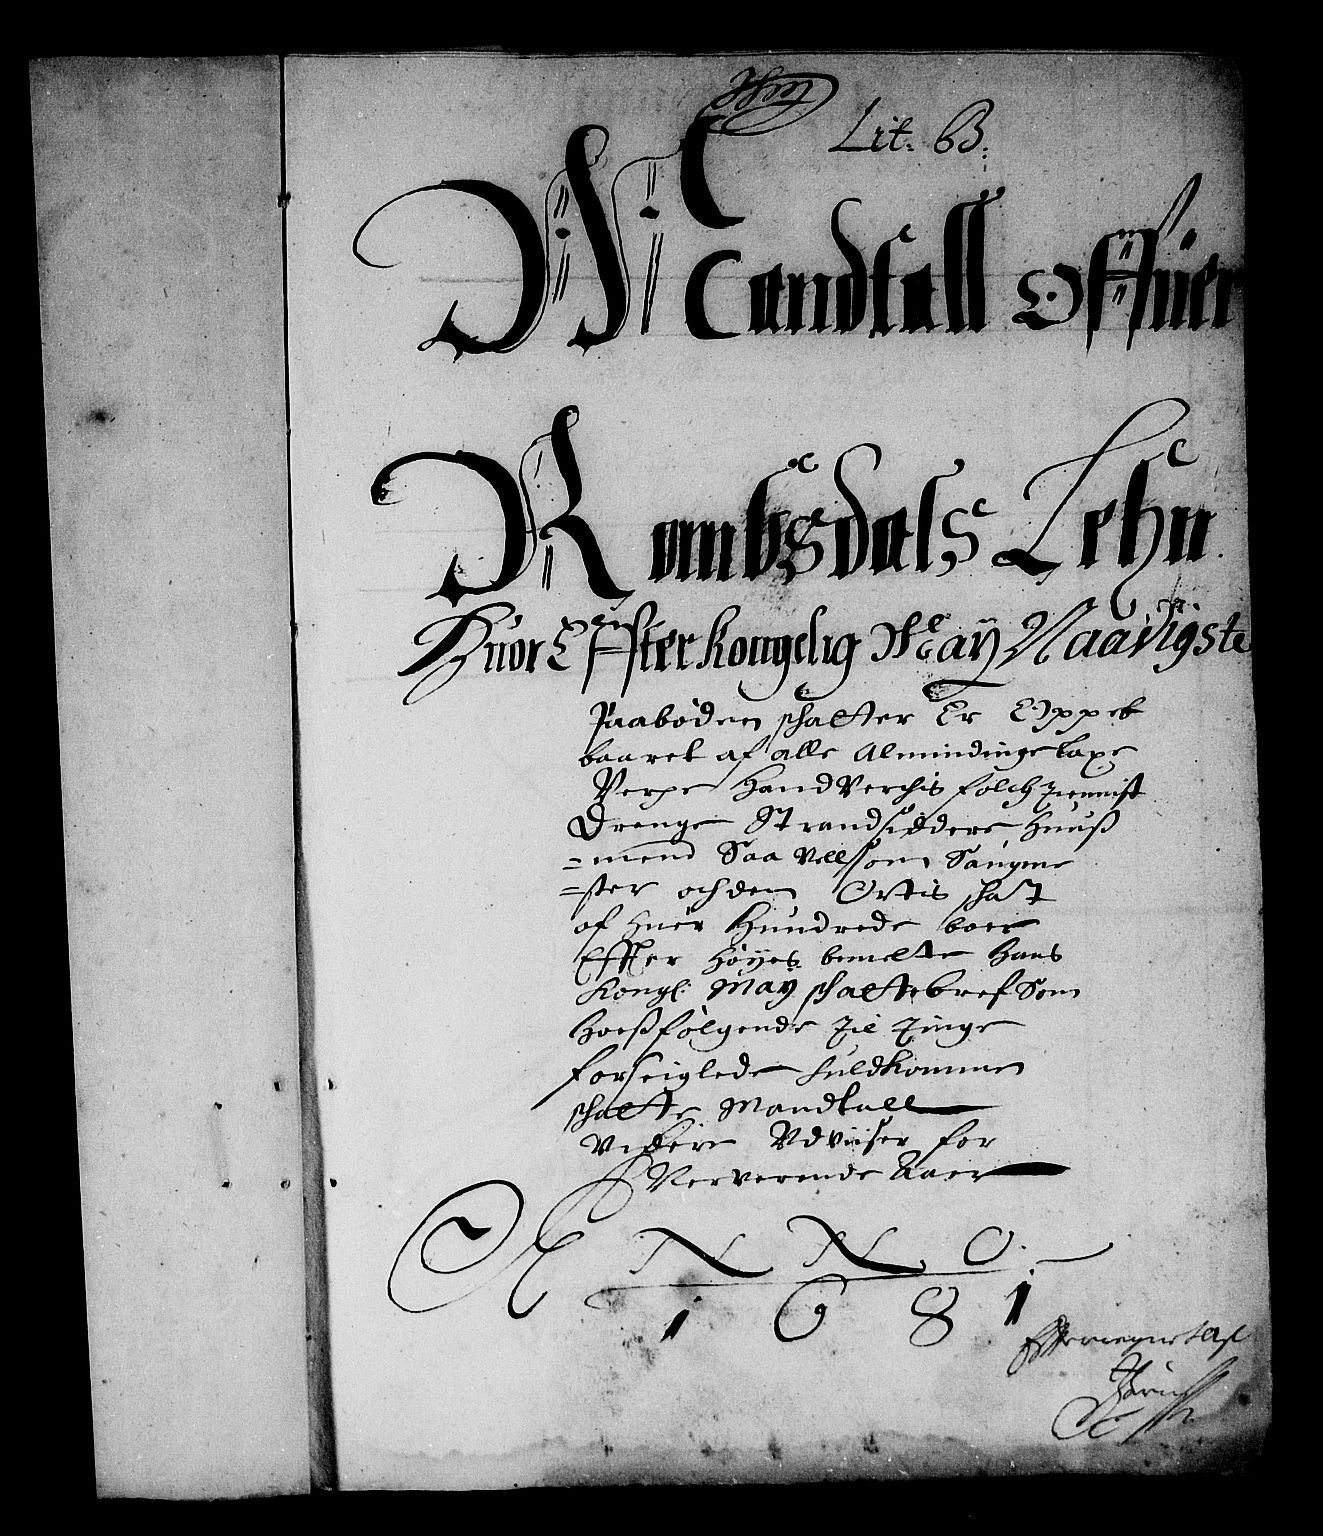 Lit. B.
Mandtall Offuer
Rombsdals Lehn
Huor Effter Kongelig May Naadigste
Paabøden schatter Er Oppeb
baaret af alle Almindinge Laxe
Verpe Handverchis folch Tiennist
Drenge Strandsidderre Huuß
=mend Saa vell som Saugme
=ster och den Ortis schatt
af huer Hundrede boer
Effter Høyes bemelte Hans
Kongl: May schatte bref Som
Hoeß følgende til Tinge
forseiglede fuldkommen
schatte Mandtall
Videre Udviiser for
Nerverende Aaer
ANNO.
1681